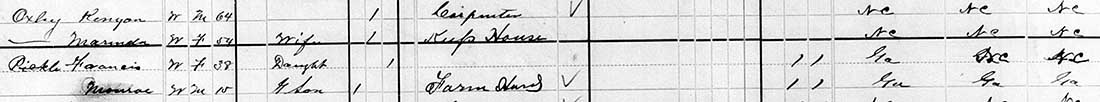 Oxley Kenyon W M 64 1 Carpenter NC NC NC
— Marinda W F 54 Wife 1 Keeps House NC NC NC
Pickle Francis W F 38 Daught 1 1 1 Ga NC NC
Monroe W M 10 G Son 1 Farm Hand 1 1 Ga Ga Ga